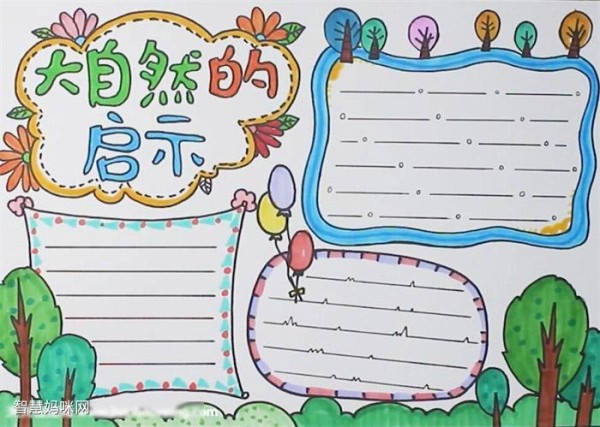 大自然的
启示
智慧妈咪网